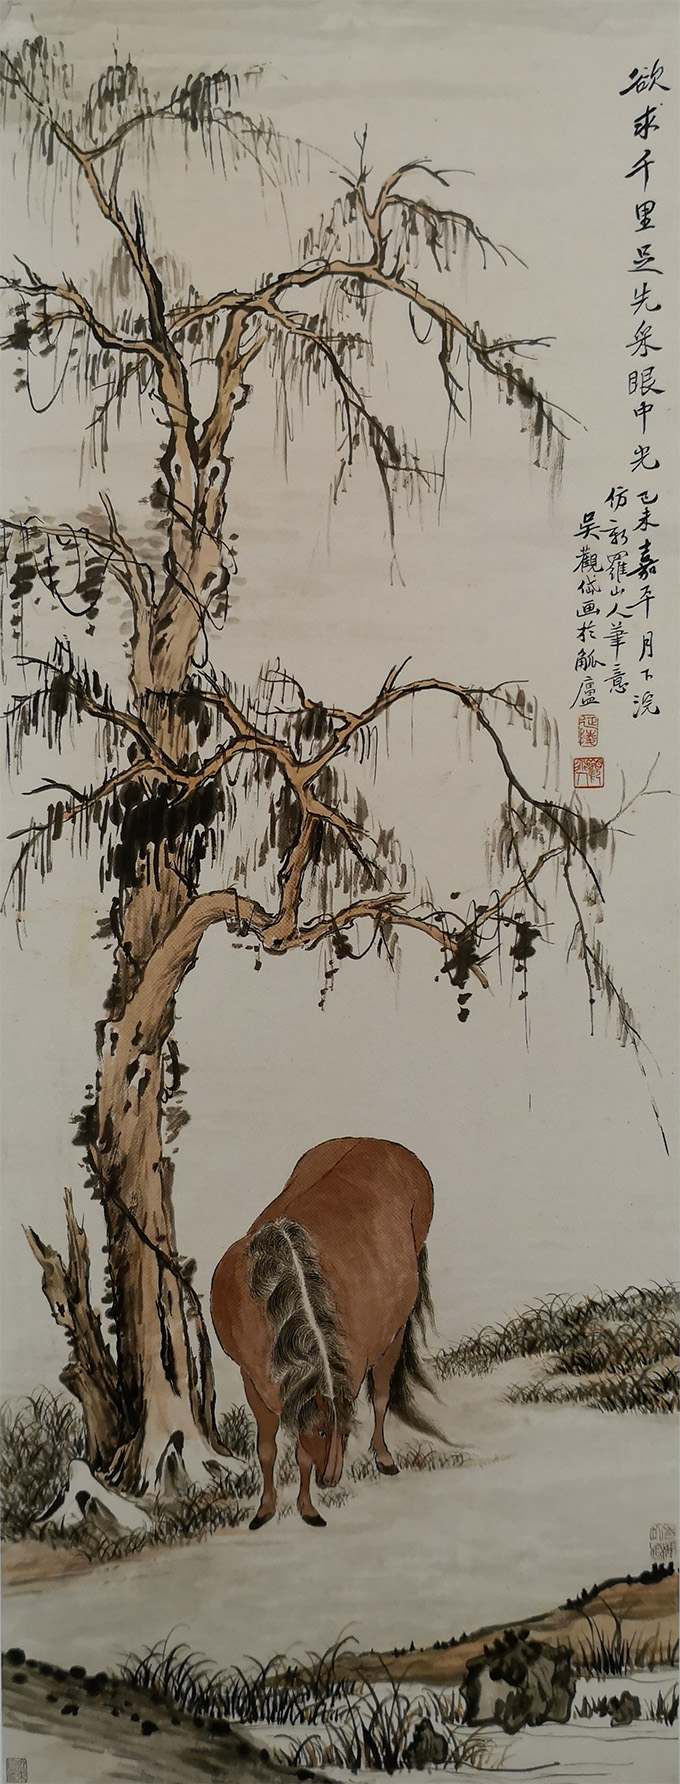 欲求千里足先采眼中光己未嘉平月下浣
仿新羅山人筆意
吳觀岱画於觚廬